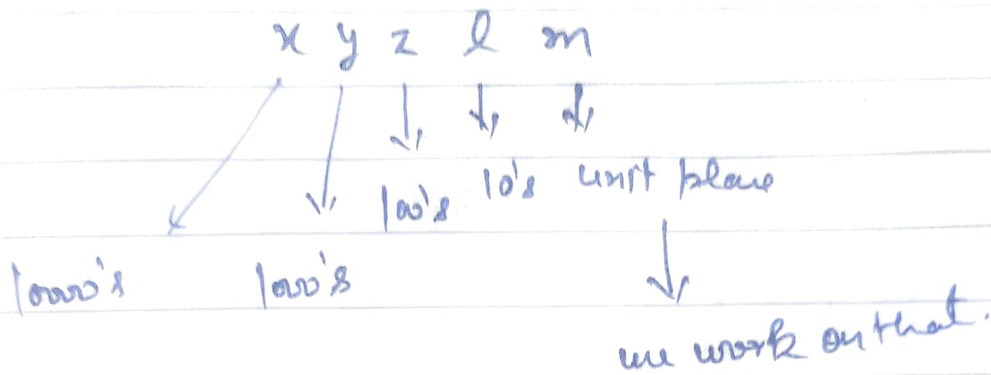 x y z l m
100's 10's unit place
10000's 1000's
we work on that.